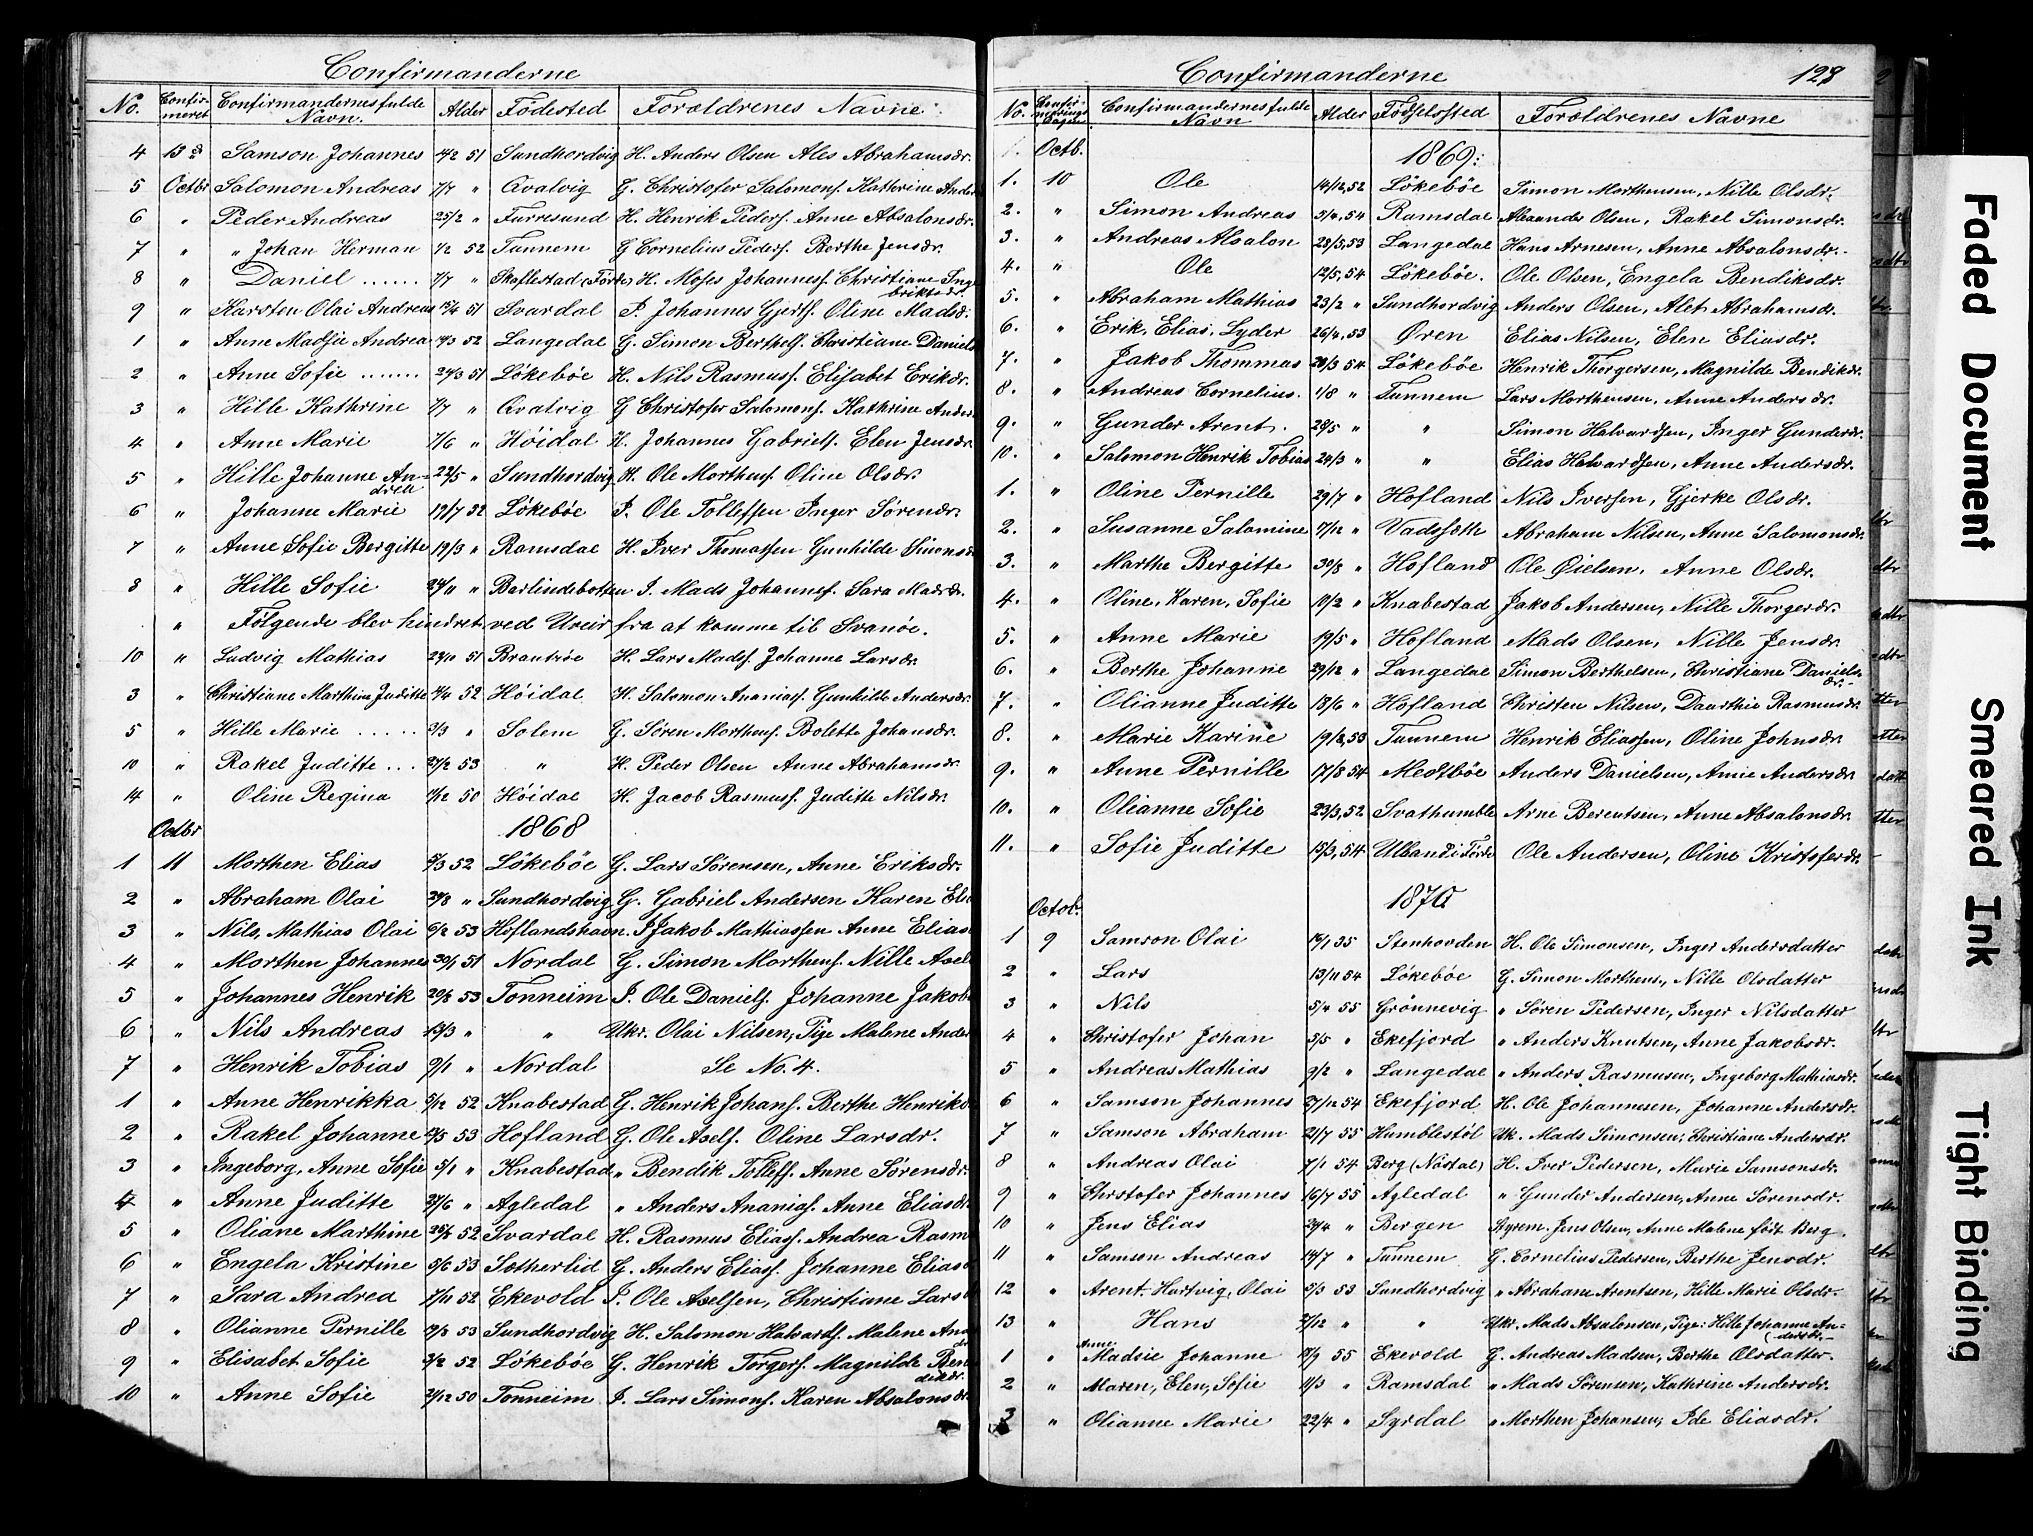 Confirmanderne
No. Confirmeret Confirmandernes fulde Navn. Alder Födested Forældrenes Navne
4 13de Samson Johannes 51 Sundhordvig H. Anders Olsen Ales Abrahamsdr.
5 Octbr Salomon Andreas 7/7 " Qvalvig G. Christofer Salomons. Kathrine Anders
6 " Peder Andreas 25/2 " Furresund H. Henrik Peders. Anne Absalonsdr.
7 " " Johan Herman 1/2 52 Tunnem G Cornelius Peders. Berthe Jensdr.
8 " Daniel ...... 7/7 " Skaflestad (Förde) H. Moses Johanness. Christiane Inge
briktsdr.
9 " Karsten Olai Andreas 51 Svardal I. Johannes Gjerts. Oline Madsdr.
1 " Anne Madsie Andrea 52 Langedal G. Simon Berthels. Christiane Daniels
2 " Anne Sofie ....... 24/3 51 Lökeböe H. Nils Rasmuss. Elisabet Eriksdr.
3 " Hille Kathrine 7/7 " Qvalvig G Christofer Salomons. Kathrine Anders
4 " Anne Marie 7/6 " Höidal H. Johannes Gabriels. Elen Jensdr.
5 " Hille Johanne An- 22/5 " Sundhordvig H. Ole Morthens. Oline Olsdr.
drea
6 " Johanne Marie 19/7 52 Lökeböe I. Ole Tollefsen Inger Sörensdr.
7 " Anne Sofie Bergitte 19/3 " Ramsdal H. Iver Thomassen Gunhilde Simonsd
8 " Hille Sofie 24/11 " Barlindebotten I. Mads Johanness. Sara Madsdr.
" Følgende blev hindret ved Uveir fra at komme til Svanöe.
10 " Ludvig Mathias 51 H. Lars Madss. Johanne Larsdr.
3 " Christiane Marthine Juditte 52 Höidal H. Salomon Ananiass. Gunhilde Andersdr.
5 " Hille Marie ..... 3/3 " Solem G. Sören Morthens. Bolette Johansdr.
10 " Rakel Juditte ... 53 " H. Peder Olsen Anne Abrahamsdr.
14 " Oline Regina 50 Höidal H. Jacob Rasmuss. Juditte Nilsdr.
Octbr 1868
1 11 Morthen Elias 52 Lökeböe G. Lars Sörensen, Anne Eriksdr.
2 " Abraham Olai " Sundhordvig G. Gabriel Andersen Karen Ele
3 " Nils, Mathias Olai 6/2 53 Hoflandshavn I Jakob Mathiassen Anne Elias
4 " Morthen Johannes 30/1 51 Nordal G. Simon Morthens. Nille Axel
5 " Johannes Henrik 53 Tonneim I. Ole Daniels. Johanne Jakob
6 " Nils Andreas 13/3 " " Ukr. Olai Nilsen, Pige Malene Ander
7 " Henrik Tobias 9/1 " Nordal Se No. 4.
1 " Anne Henrikka 5/12 52 Knabestad G. Henrik Johans. Berthe Henriksd
2 " Rakel Johanne 53 Hofland G. Ole Axels. Oline Larsdr.
3 " Ingeborg, Anne Sofie 5/1 " Knabestad " Bendik Tollefs. Anne Sörensdr.
4 " Anne Juditte " Agledal " Anders Ananias. Anne Eliasdr.
5 " Oliane Marthine 52 Svardal H. Rasmus Eliass. Andrea Rasm
6 " Engela Kristine 5/6 53 Sötherlid G. Anders Eliass. Johanne Elias
7 " Sara Andrea 7/11 52 Ekevold I. Ole Axelsen, Christiane Lars
8 " Olianne Pernille 53 Sundhordvig H. Salomon Halvards. Malene And
dr
9 " Elisabet Sofie 52 Lökeböe G. Henrik Torgers. Magnilde Ben
diksdr.
10 " Anne Sofie 50 Tonneim I. Lars Simons. Karen Absalonsdr.
Confirmanderne 128
No. Confirmerings Dagen Confirmandernes fulde Navn Alder Födselssted Forældrenes Navne
1. Octb. 1869:
1. 10 Ole 14/12,52 Lökeböe Simon Morthensen, Nille Olsdr.
2. " Simon Andreas 5/4,54 Ramsdal Alexander Olsen, Rakel Simonsdr.
3. " Andreas Absalon 28/5,53 Langedal Hans Arnesen, Anne Absalonsdr.
4. " Ole 12/5,54 Lökebøe. Ole Olsen, Engela Bendiksdr.
5. " Abraham Mathias 23/2 " Sundhordvig Anders Olsen, Alet Abrahamsdr.
6. " Erik, Elias, Lyder 26/4,53 Øren Elias Nilsen, Elen Eliasdr.
7. " Jakob Thommas 54 Lökebøe Henrik Thorgersen, Magnilde Bendiksdr.
8. " Andreas Cornelius. 1/8 " Tunnem Lars Morthensen, Anne Andersdr.
9. " Gunder Arent. 28/5 " " Simon Halvardsen, Inger Gundersdr.
10. " Salomon Henrik Tobias 24/3 " " Elias Halvardsen, Anne Andersdr.
1. " Oline Pernille 29/7 " Hofland Nils Iversen, Gjerke Olsdr.
2. " Susanne Salamine 7/12 " Vadseth Abraham Nilsen, Anne Salomonsdr.
3. " Marthe Bergitte 30/8 " Hofland Ole Øielsen, Anne Olsdr.
4. " Oline, Karen, Sofie " Knabestad Jakob Andersen, Nille Thorgersdr.
5. " Anne Marie 19/5 " Hofland Mads Olsen, Nille Jensdr.
6. " Berthe Johanne 29/12 " Langedal Simon Berthelsen, Christiane Daniels-
dr.
7. " Olianne Juditte 18/6 " Hofland Christen Nilsen, Daarthie Rasmusdr.
8. " Marie Karine 19/2,53 Tunnem Henrik Eliassen, Oline Johnsdr.
9. " Anne Pernille 17/8 54 Medtböe Anders Danielsen, Anne Andersdr.
10. " Olianne Sofie 23/3,52 Svathumble Arne Berentsen, Anne Absalonsdr.
11. " Sofie Juditte 15/3,54 Ulland i Förde Ole Andersen, Oline Kristofersdr.
1870
Octob.
1 9 Samson Olai Stenhovden H. Ole Simonsen, Inger Andersdatter
2 " Lars 13/11 54 Lökebøe G. Simon Morthens., Nille Olsdatter
3 " Nils 5/4 55 Grönnevig " Sören Pedersen, Inger Nilsdatter
4 " Christofer Johan 5/5 " Ekefjord " Anders Knutsen, Anne Jakobsdr.
5 " Andreas Mathias 9/2 " Langedal " Anders Rasmusen, Ingeborg Mathiasdr.
6 " Samson Johannes 27/12 54 Ekefjord H. Ole Johannesen, Johanne Andersdr.
7 " Samson Abraham 21/7 55 Humblestöl Uk. Mads Simonsen, Christiane Andersdr.
8 " Andreas Olai 7/1 54 Berg (Nästal) H. Iver Pedersen, Marie Samsonsdr.
9 " Christofer Johannes 16/7 55 Agledal " Gunder Andersen, Anne Sörensdr.
10 " Jens Elias 29/4 " Bergen Styrem. Jens Olsen, Anne Malene födt Berg.
11 " Samson Andreas 14/7 " Tunnem G. Cornelius Pedersen, Berthe Jensdr.
12 " Arent, Hartvig, Olai 5/3 53 Sundhordvig " Abraham Arentsen, Hille Marie Olsdr.
13 " Hans " " Ukr. Mads Absalonsen, Pige: Hille Johanne An-
(dersdr.
Anne
1 " Madsie Johanne 55 Ekevold G. Andreas Madsen, Berthe Olsdatter.
2 " Maren, Elen, Sofie 11/3 " Ramsdal " Mads Sörensen, Kathrine Andersdr.
3 " Olianne Marie 22/4 " Syrdal " Morthen Johansen, Ide Eliasdr.
Faded Document
Smeared Ink
Tight Binding